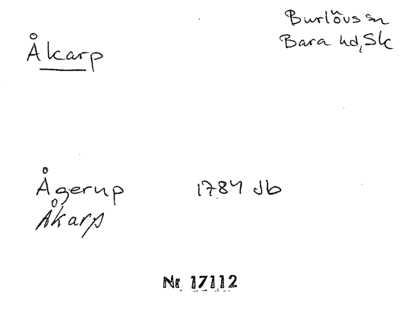 Åkarp
Burlövs sn
Bara hd, Sk
Ågerup 1784 Jb
Åkarp
Nr 17112